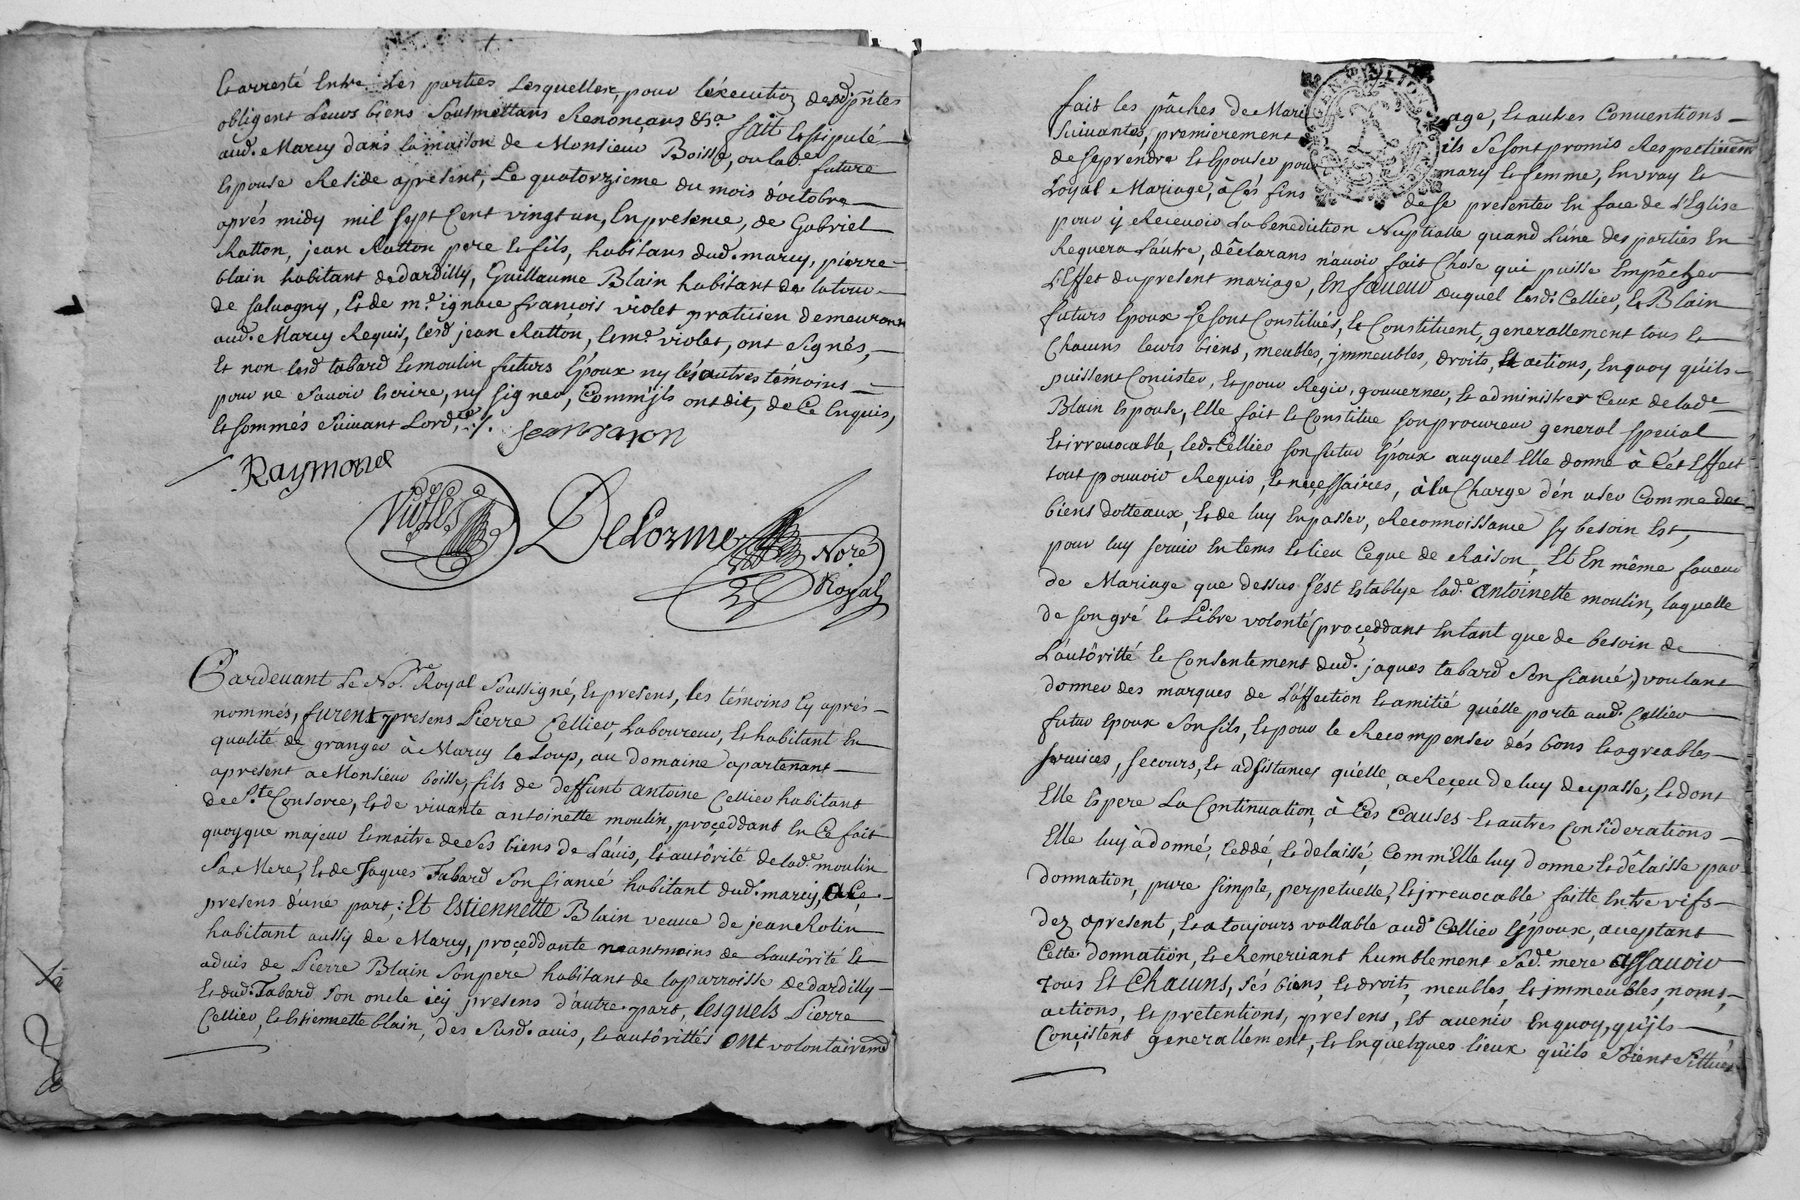 Et arresté Entre Les parties Lesquelles, pour L'execution des dp̃ntes
obligent Leurs biens Sousmettans Renonçans &ᵃ fait Et stipulé
aud. Marcy dans la maison de Monsieur Boisse, ou lade future
Epouse Reside apresent, Le quatorzieme du mois d'octobre
aprés midy mil sept Cent vingt un, En presence, de Gabriel
Ratton, jean Ratton pere Et fils, habitans dud. marcy, pierre
blain habitant de dardilly, Guillaume Blain habitant de la tour
de salvagny, Et de mᵉ ignace françois violet praticien demeurant
aud. Marcy Requis, lesd jean Ratton, Et mᵉ violet, ont signés,
Et non lesd tabard Et moulin futurs Epoux ny les autres témoins
pour ne Savoir Escrire, ny signer, Comm'jls ont dit, de Ce Enquis,
Et sommés Suivant Lordᶜᵉ ./.
Raymond
Violet
Delorme Noʳᵉ
Royal
Pardevant Le Noʳᵉ Royal Soussigné, Et presens, les témoins Cy aprés
nommés, furent presens Pierre Cellier, Laboureur, Et habitant En
qualité de granger à Marcy le Loup, au domaine apartenant
apresent a Monsieur boisse, fils de deffunt antoine Cellier habitant
de Sᵗᵉ Consorce, Et de vivante antoinette moulin, proçeddant En Ce fait
quoyque majeur Et maître de Ses biens de L'avis, Et autôrité de lade moulin
Sa Mere, Et de Jaques Tabard Son fiancé habitant dud. marcy, a Ce
presens d'une part; Et Estiennette Blain veuve de jean Rolin
habitant aussy de Marcy, proçeddante neantmoins de L'autôrité Et
advis de Pierre Blain Son pere habitant de la parroisse de dardilly
Et dud. Tabard Son oncle icy presens d'autre part, Lesquels Pierre
Cellier, Et Estiennette blain, des Susd. avis, Et autôrittés ont volontairemᵗ
fait les pâches de Mariage, Et autres Conventions
Suivantes, premierement ils Se sont promis Respectivemᵗ
de Se prendre Et Epouser pour mary Et femme, En vray Et
Loyal Mariage, à Cés fins de se presenter En face de L'Eglise
pour ÿ Recevoir La benediction Nuptialle quand L'une des parties En
Requera L'autre, déclarans n'avoir fait Chose qui puisse Empêcher
L'Effet du present mariage, En faveur duquel Lesd. Cellier, Et Blain
futurs Epoux Se sont Constitués, Et Constituent, generallement tous Et
Chacuns leurs biens, meubles, jmmeubles, droits, Et actions, En quoy qu'ils
puissent Concister, Et pour Regir, gouverner, Et administrer Ceux de lade
Blain Epouse, Elle fait Et Constitue Son procureur general special
Et irrevocable, led. Cellier son futur Epoux auquel Elle donne à Cét Effect
tout pouvoir Requis, Et neçessaires, à la Charge d'én user Comme des
biens dotteaux, Et de luy En passer, Reconnoissance sy besoin Est,
pour luy servir En tems Et lieu Ce que de Raison, Et En même faveur
de Mariage que dessus s'est Establye lade antoinette moulin, laquelle
de son gré Et Libre volonté (proçeddant En tant que de besoin de
L'autôritté Et Consentement dud. jaques tabard Son fiancé) voulant
donner des marques de L'affection Et amitié qu'élle porte aud. Cellier
futur Epoux Son fils, Et pour le Recompenser dés bons Et agreables
services, secours, Et adsistances qu'élle, a Reçeu de luy du passe, Et dont
Elle Espere La Continuation, à Ces Causes Et autres Considerations
Elle luy à donné, Ceddé, Et delaissé, Comm'Elle luy donne Et délaisse par
donnation, pure simple, perpetuelle, Et jrrevocable faitte Entre vifs
dez apresent, Et a toujours vallable aud. Cellier Epoux, aceptant
Cette donnation, Et Remerciant humblement Sade mere assavoir
tous Et Chacuns, Sés biens, Et droits, meubles, Et jmmeubles, noms,
actions, Et prétentions, presens, Et avenir En quoy, qu'jls
Conçistent generállement, Et En quelques lieux qu'ils Soient Sittués